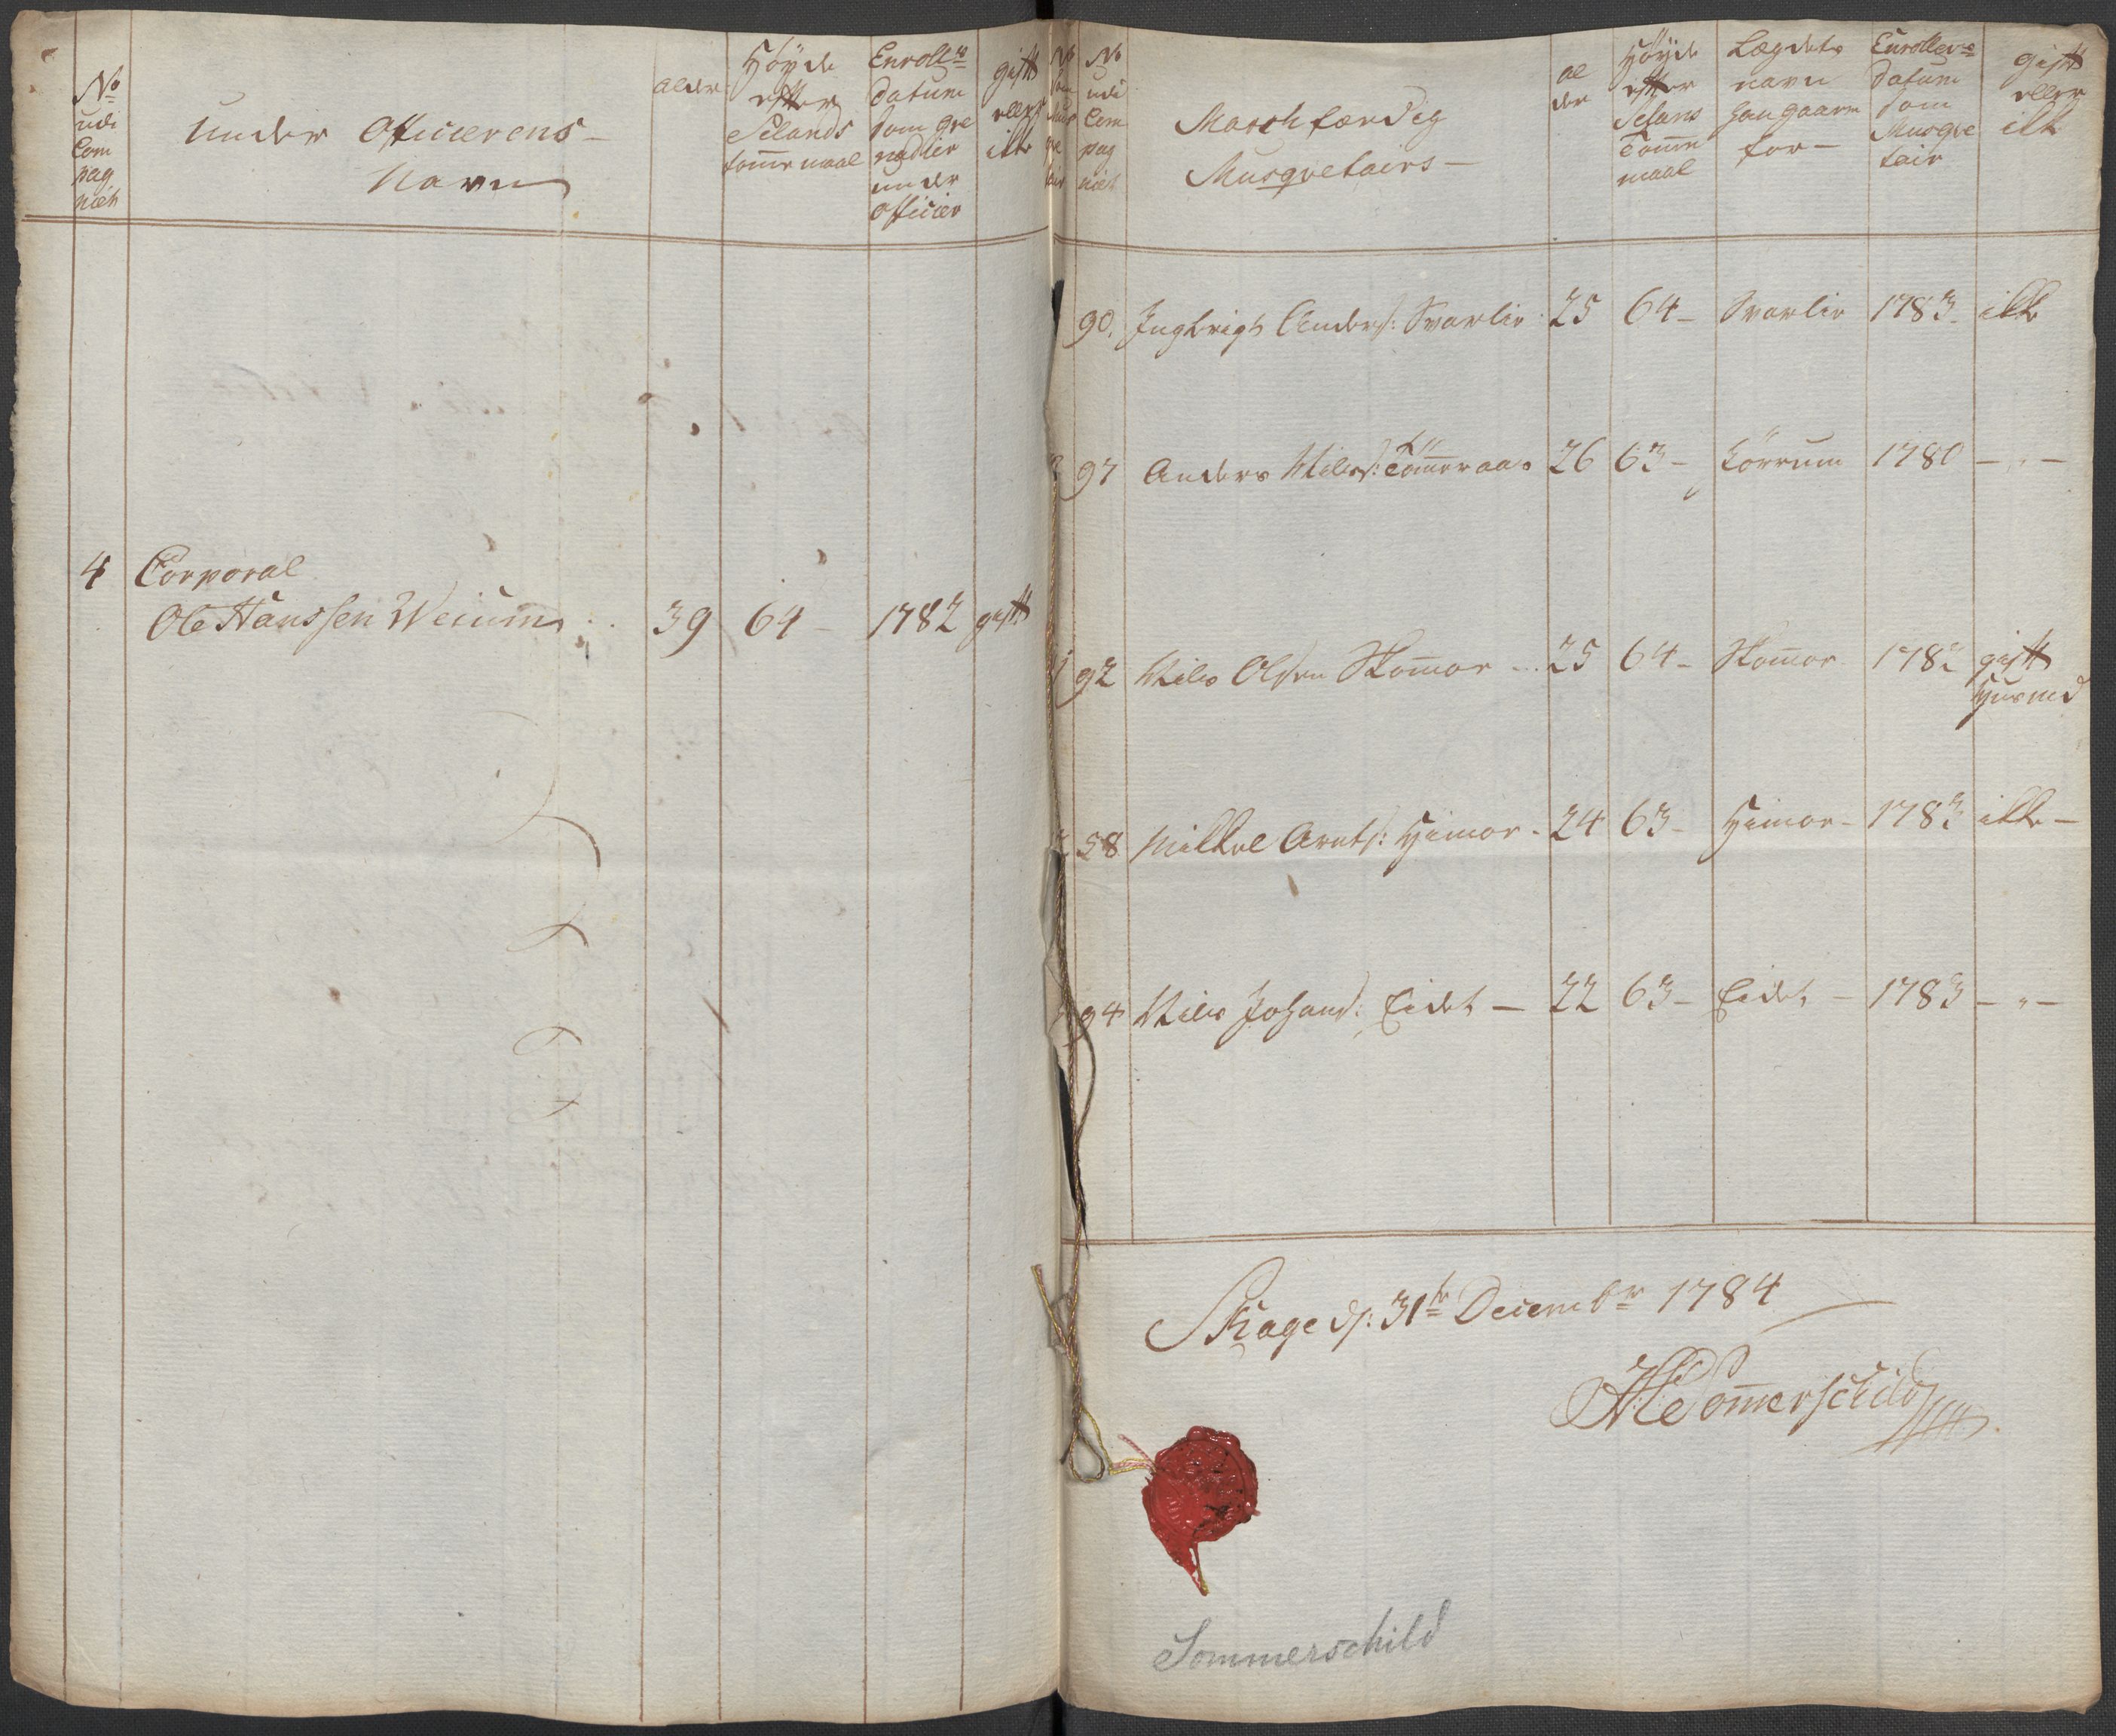 No
udi
Com
pag
niet
Under Officerens
Navn
alder
Høyde
efter
Selands
tomme maal
Enrolle
Datum
som gre
nadier
under
officier
gift
eller
ikke
4 Corporal
Ole Hanssen Weium 39 64 - 1782 gift
No
udi
Com
pag
niet
Marchfærdig
Musqvetairs -
al
der
Høyde
efter
Selans
Tomme
maal
Lægdets
navn
han gaar
for -
Enroller
Datum
som
Musqve
tair
gift
eller
ikke
90. Ingbrigt Anders: Svarlie 25 64 - Svarlie 1783 ikke
97 Anders Nils: Tømeraas 26 63 - Körrum 1780 - " -
92 Nils Olsen Skomoe 25 64 - Skomoe 1782 gift
Husmd
58 Mikkel Arnts: Himoe - 24 63 - Himoe - 1783 ikke -
94 Nils Johans: Eidet - 22 63 - Eidet - 1783 - " -
Skage d: 31te Decembr 1784
Sommerschild
Sommerschild